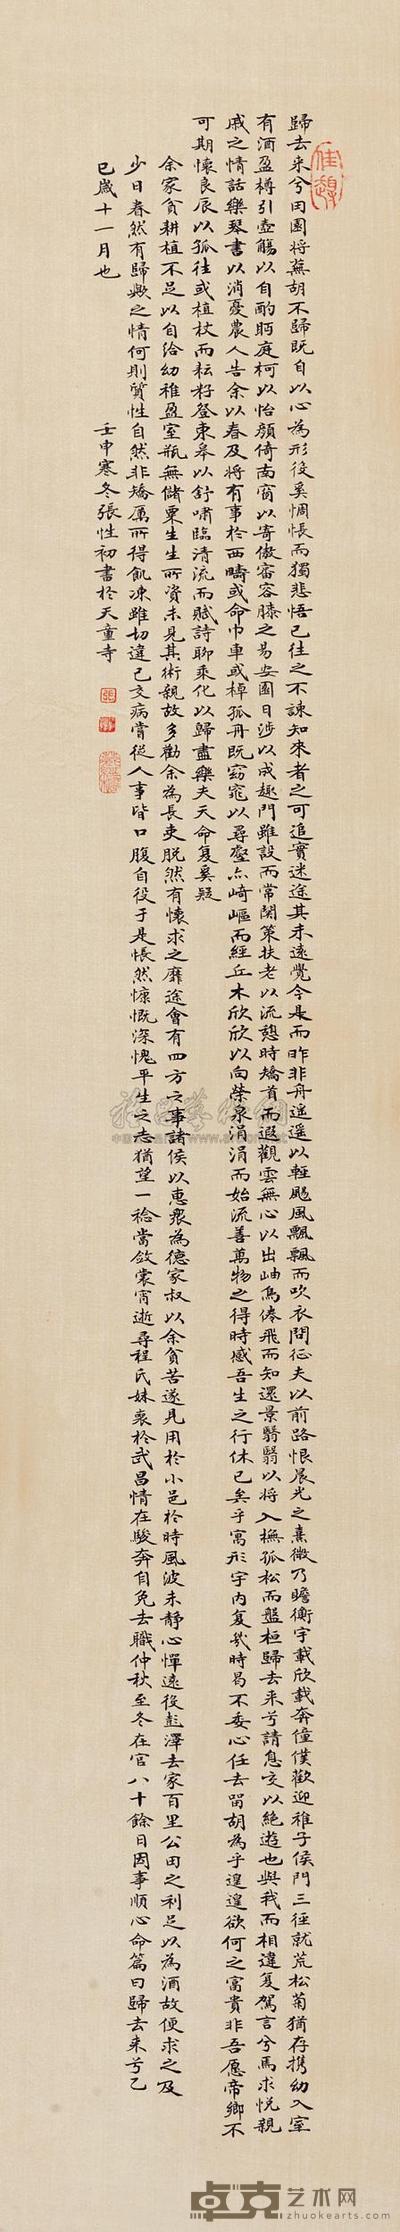 歸去来兮田園将蕪胡不歸既自以心為形役奚惆悵而獨悲悟已往之不諫知來者之可追實迷途其未遠覺今是而昨非舟遥遥以輕颺風飄飄而吹衣問征夫以前路恨晨光之熹微乃瞻衡宇載欣載奔僮僕歡迎稚子侯門三徑就荒松菊猶存携幼入室
有酒盈樽引壺觴以自酌眄庭柯以怡顔倚南窗以寄傲審容膝之易安園日涉以成趣門雖設而常関策扶老以流憩時矯首而遐觀雲無心以出岫鳥倦飛而知還景翳翳以将入撫孤松而盤桓歸去来兮請息交以絶遊也與我而相違复駕言兮焉求悦親
戚之情話樂琴書以消憂農人告余以春及将有事於西疇或命巾車或棹孤舟既窈窕以尋壑亦崎嶇而經丘木欣欣以向榮泉涓涓而始流善萬物之得時感吾生之行休已矣乎寓形宇内复幾時曷不委心任去留胡為乎遑遑欲何之富貴非吾愿帝鄉不
可期懷良辰以孤往或植杖而耘籽登東皋以舒嘯臨清流而賦詩聊乘化以歸盡樂夫天命复奚疑
余家貧耕植不足以自给幼稚盈室瓶無儲粟生生所資未見其術親故多勸余為長吏脱然有懷求之靡途會有四方之事諸侯以惠愛為德家叔以余貧苦遂見用於小邑於時風波未静心憚遠役彭澤去家百里公田之利足以為酒故便求之及
少日眷然有歸歟之情何則質性自然非矯厲所得飢凍雖切違己交病嘗從人事皆口腹自役于是悵然慷慨深愧平生之志猶望一稔當斂裳宵逝尋程氏妹喪於武昌情在駿奔自免去職仲秋至冬在官八十餘日因事順心命篇曰歸去来兮乙
巳歲十一月也
壬申寒冬張性初書於天童寺
卓克艺术网
zhuokearts.com